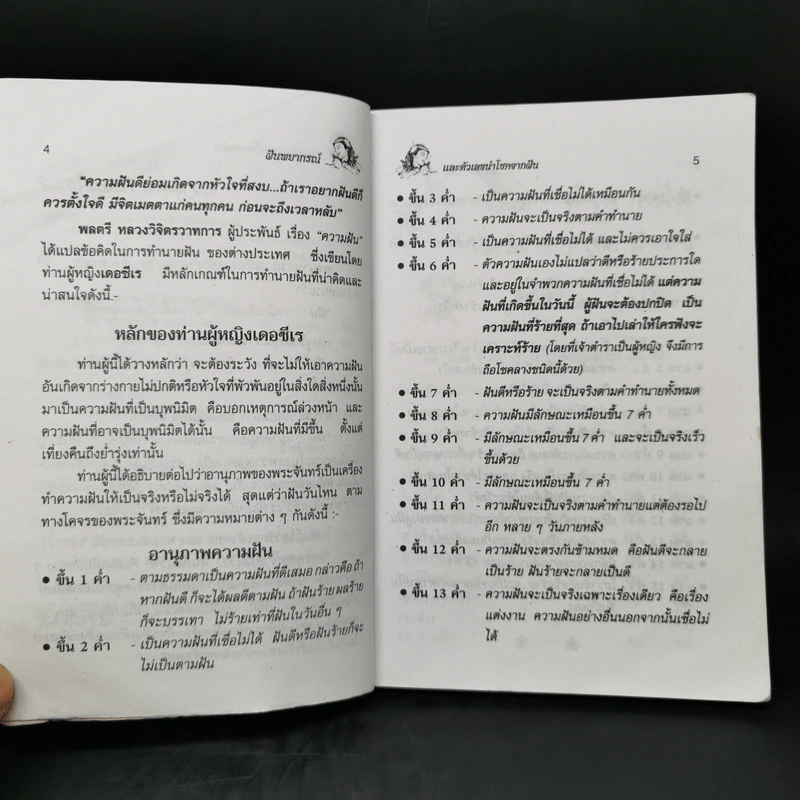 4
ฝันพยากรณ์
“ความฝันดีย่อมเกิดจากหัวใจที่สงบ...ถ้าเราอยากฝันดีก็
ควรตั้งใจดี มีจิตเมตตาแก่คนทุกคน ก่อนจะถึงเวลาหลับ”
พลตรี หลวงวิจิตรวาทการ ผู้ประพันธ์ เรื่อง “ความฝัน”
ได้แปลข้อคิดในการทำนายฝัน ของต่างประเทศ ซึ่งเขียนโดย
ท่านผู้หญิงเดอซีเร มีหลักเกณฑ์ในการทำนายฝันที่น่าคิดและ
น่าสนใจดังนี้.-
หลักของท่านผู้หญิงเดอซีเร
ท่านผู้นี้ได้วางหลักว่า จะต้องระวัง ที่จะไม่ให้เอาความฝัน
อันเกิดจากร่างกายไม่ปกติหรือหัวใจที่พัวพันอยู่ในสิ่งใดสิ่งหนึ่งนั้น
มาเป็นความฝันที่เป็นบุพนิมิต คือบอกเหตุการณ์ล่วงหน้า และ
ความฝันที่อาจเป็นบุพนิมิตได้นั้น คือความฝันที่มีขึ้น ตั้งแต่
เที่ยงคืนถึงย่ำรุ่งเท่านั้น
ท่านผู้นี้ได้อธิบายต่อไปว่าอานุภาพของพระจันทร์เป็นเครื่อง
ทำความฝันให้เป็นจริงหรือไม่จริงได้ สุดแต่ว่าฝันวันไหน ตาม
ทางโคจรของพระจันทร์ ซึ่งมีความหมายต่าง ๆ กันดังนี้ :-
อานุภาพความฝัน
• ขึ้น 1 ค่ำ - ตามธรรมดาเป็นความฝันที่ดีเสมอ กล่าวคือ ถ้า
หากฝันดี ก็จะได้ผลดีตามฝัน ถ้าฝันร้าย ผลร้าย
ก็จะบรรเทา ไม่ร้ายเท่าที่ฝันในวันอื่น ๆ
• ขึ้น 2 ค่ำ - เป็นความฝันที่เชื่อไม่ได้ ฝันดีหรือฝันร้ายก็จะ
ไม่เป็นตามฝัน
และตัวเลขนำโชคจากฝัน
5
• ขึ้น 3 ค่ำ - เป็นความฝันที่เชื่อไม่ได้เหมือนกัน
• ขึ้น 4 ค่ำ - ความฝันจะเป็นจริงตามคำทำนาย
• ขึ้น 5 ค่ำ - เป็นความฝันที่เชื่อไม่ได้ และไม่ควรเอาใจใส่
• ขึ้น 6 ค่ำ - ตัวความฝันเองไม่แปลว่าดีหรือร้ายประการใด
และอยู่ในจำพวกความฝันที่เชื่อไม่ได้ แต่ความ
ฝันที่เกิดขึ้นในวันนี้ ผู้ฝันจะต้องปกปิด เป็น
ความฝันที่ร้ายที่สุด ถ้าเอาไปเล่าให้ใครฟังจะ
เคราะห์ร้าย (โดยที่เจ้าตำราเป็นผู้หญิง จึงมีการ
ถือโชคลางชนิดนี้ด้วย)
• ขึ้น 7 ค่ำ - ฝันดีหรือร้าย จะเป็นจริงตามคำทำนายทั้งหมด
• ขึ้น 8 ค่ำ - ความฝันมีลักษณะเหมือนขึ้น 7 ค่ำ
• ขึ้น 9 ค่ำ - มีลักษณะเหมือนขึ้น 7 ค่ำ และจะเป็นจริงเร็ว
ขึ้นด้วย
• ขึ้น 10 ค่ำ - มีลักษณะเหมือนขึ้น 7 ค่ำ
• ขึ้น 11 ค่ำ - ความฝันจะเป็นจริงตามคำทำนายแต่ต้องรอไป
อีก หลาย ๆ วันภายหลัง
• ขึ้น 12 ค่ำ - ความฝันจะตรงกันข้ามหมด คือฝันดีจะกลาย
เป็นร้าย ฝันร้ายจะกลายเป็นดี
• ขึ้น 13 ค่ำ - ความฝันจะเป็นจริงเฉพาะเรื่องเดียว คือเรื่อง
แต่งงาน ความฝันอย่างอื่นนอกจากนั้นเชื่อไม่
ได้